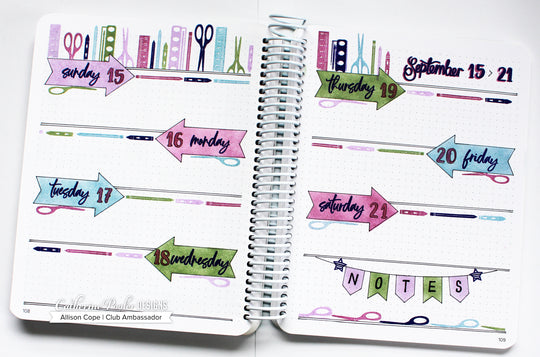 sunday 15
16 monday
tuesday 17
18 wednesday
108
Catherine Pooler DESIGNS
Allison Cope | Club Ambassador
September 15 > 21
thursday 19
20 friday
saturday 21
NOTES
109